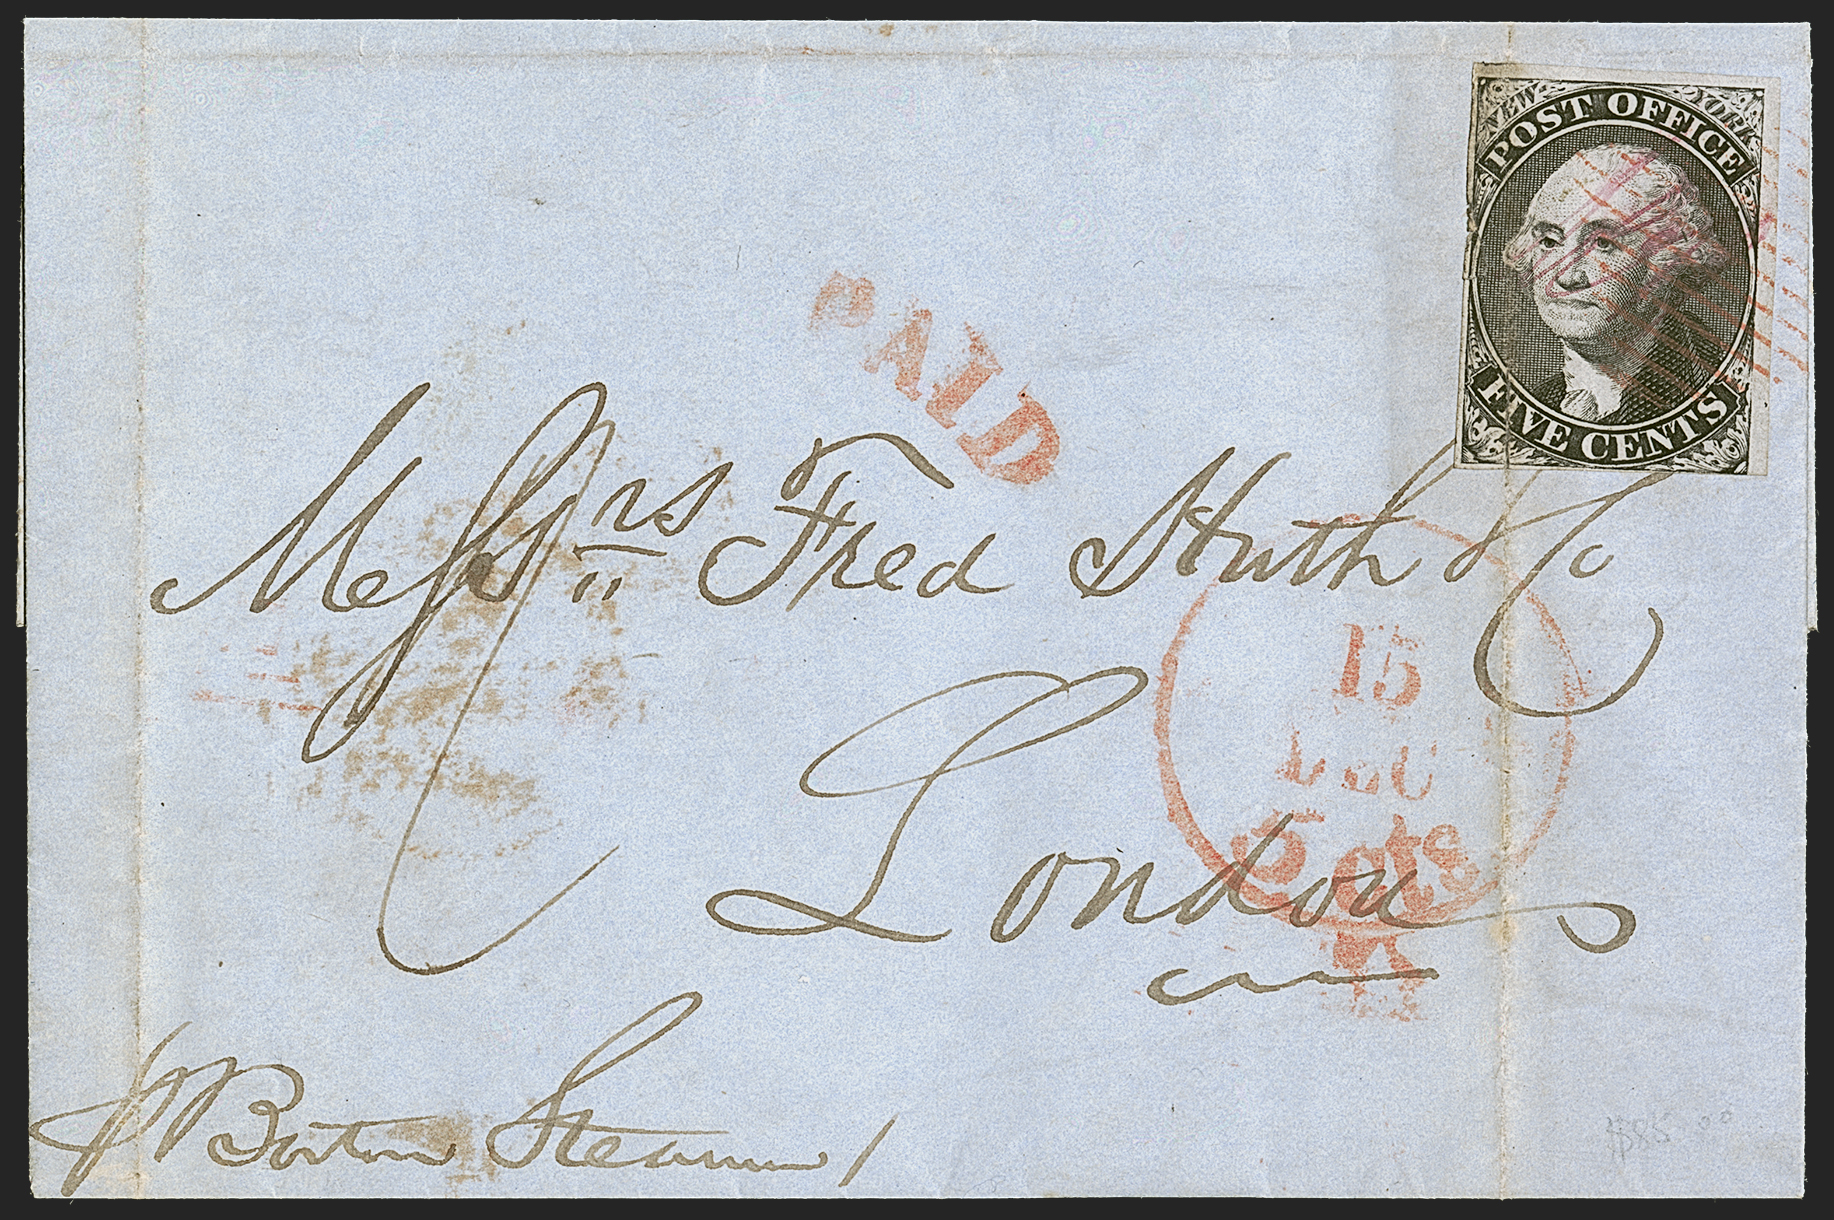 NEW YORK
POST OFFICE
FIVE CENTS
PAID
Messrs Fred Huth & Co
London
15
DEC
5 cts
p Boston Steamer
$85.00